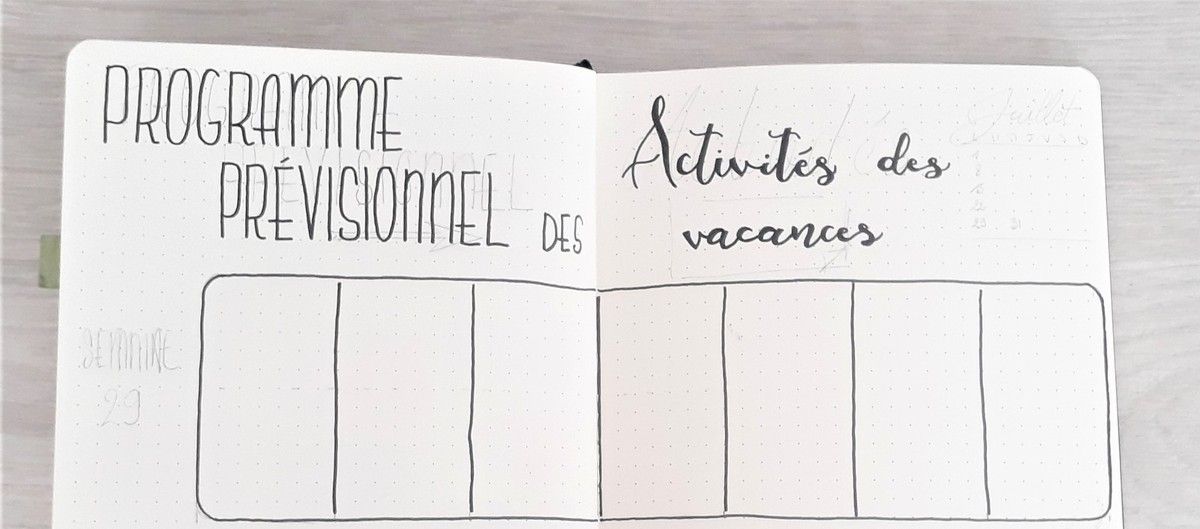 PROGRAMME
PRÉVISIONNEL DES
Activités des
vacances
Juillet
SEMAINE
29